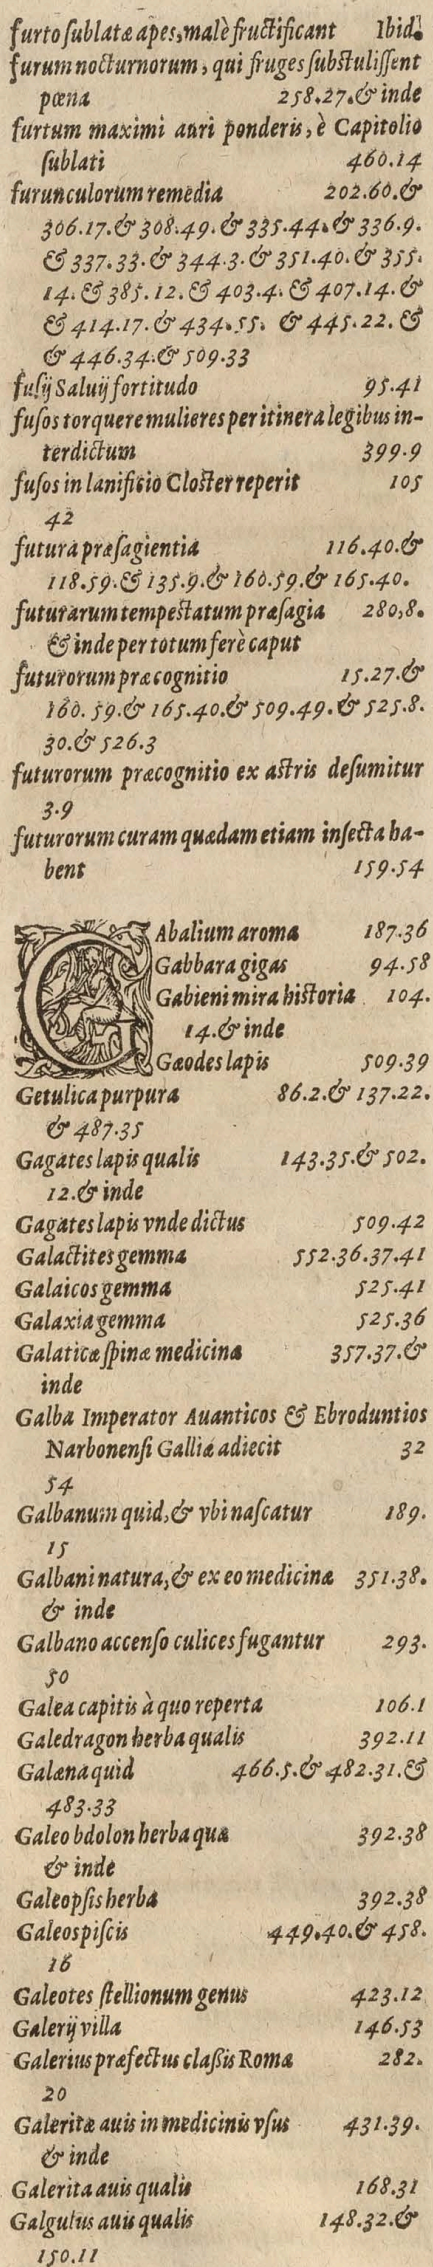 furto ſublatæ apes, malè fructificant Ibid.
furum nocturnorum, qui fruges ſubſtuliſſent
pœna 258.27.& inde
furtum maximi auri ponderis, è Capitolio
ſublati 460.14
furunculorum remedia 202.60.&
306.17.& 308.49.& 335.44.& 336.9.
& 337.33.& 344.3.& 351.40.& 355.
14.& 385.12.& 403.4.& 407.14.&
& 414.17.& 434.55. & 445.22. &
& 446.34.& 509.33
fuſij Saluij fortitudo 95.41
fuſos torquere mulieres per itinera legibus in-
terdictum 399.9
fuſos in lanificio Cloſter reperit 105
42
futura præſagientia 116.40.&
118.59.& 135.9.& 160.59.& 165.40.
futurarum tempeſtatum præſagia 280,8.
& inde per totum ferè caput
futurorum præcognitio 15.27.&
160. 59.& 165.40.& 509.49.& 525.8.
30.& 526.3
futurorum præcognitio ex aſtris deſumitur
3.9
futurorum curam quædam etiam inſecta ha-
bent 159.54
GAbalium aroma 187.36
Gabbara gigas 94.58
Gabieni mira hiſtoria 104.
14.& inde
Gæodes lapis 509.39
Getulica purpura 86.2.& 137.22.
& 487.35
Gagates lapis qualis 143.35.& 502.
12.& inde
Gagates lapis vnde dictus 509.42
Galactites gemma 552.36.37.41
Galaicos gemma 525.41
Galaxia gemma 525.36
Galaticæ ſpinæ medicina 357.37.&
inde
Galba Imperator Auanticos & Ebroduntios
Narbonenſi Galliæ adiecit 32
54
Galbanum quid, & vbi naſcatur 189.
15
Galbani natura, & ex eo medicinæ 351.38.
& inde
Galbano accenſo culices fugantur 293.
50
Galea capitis à quo reperta 106.1
Galedragon herba qualis 392.11
Galæna quid 466.5.& 482.31.&
483.33
Galeo bdolon herba quæ 392.38
& inde
Galeopſis herba 392.38
Galeos piſcis 449.40.& 458.
16
Galeotes ſtellionum genus 423.12
Galerij villa 146.53
Galerius præfectus claſsis Romæ 282.
20
Galeritæ auis in medicinis vſus 431.39.
& inde
Galerita auis qualis 168.31
Galgulus auis qualis 148.32.&
150.11